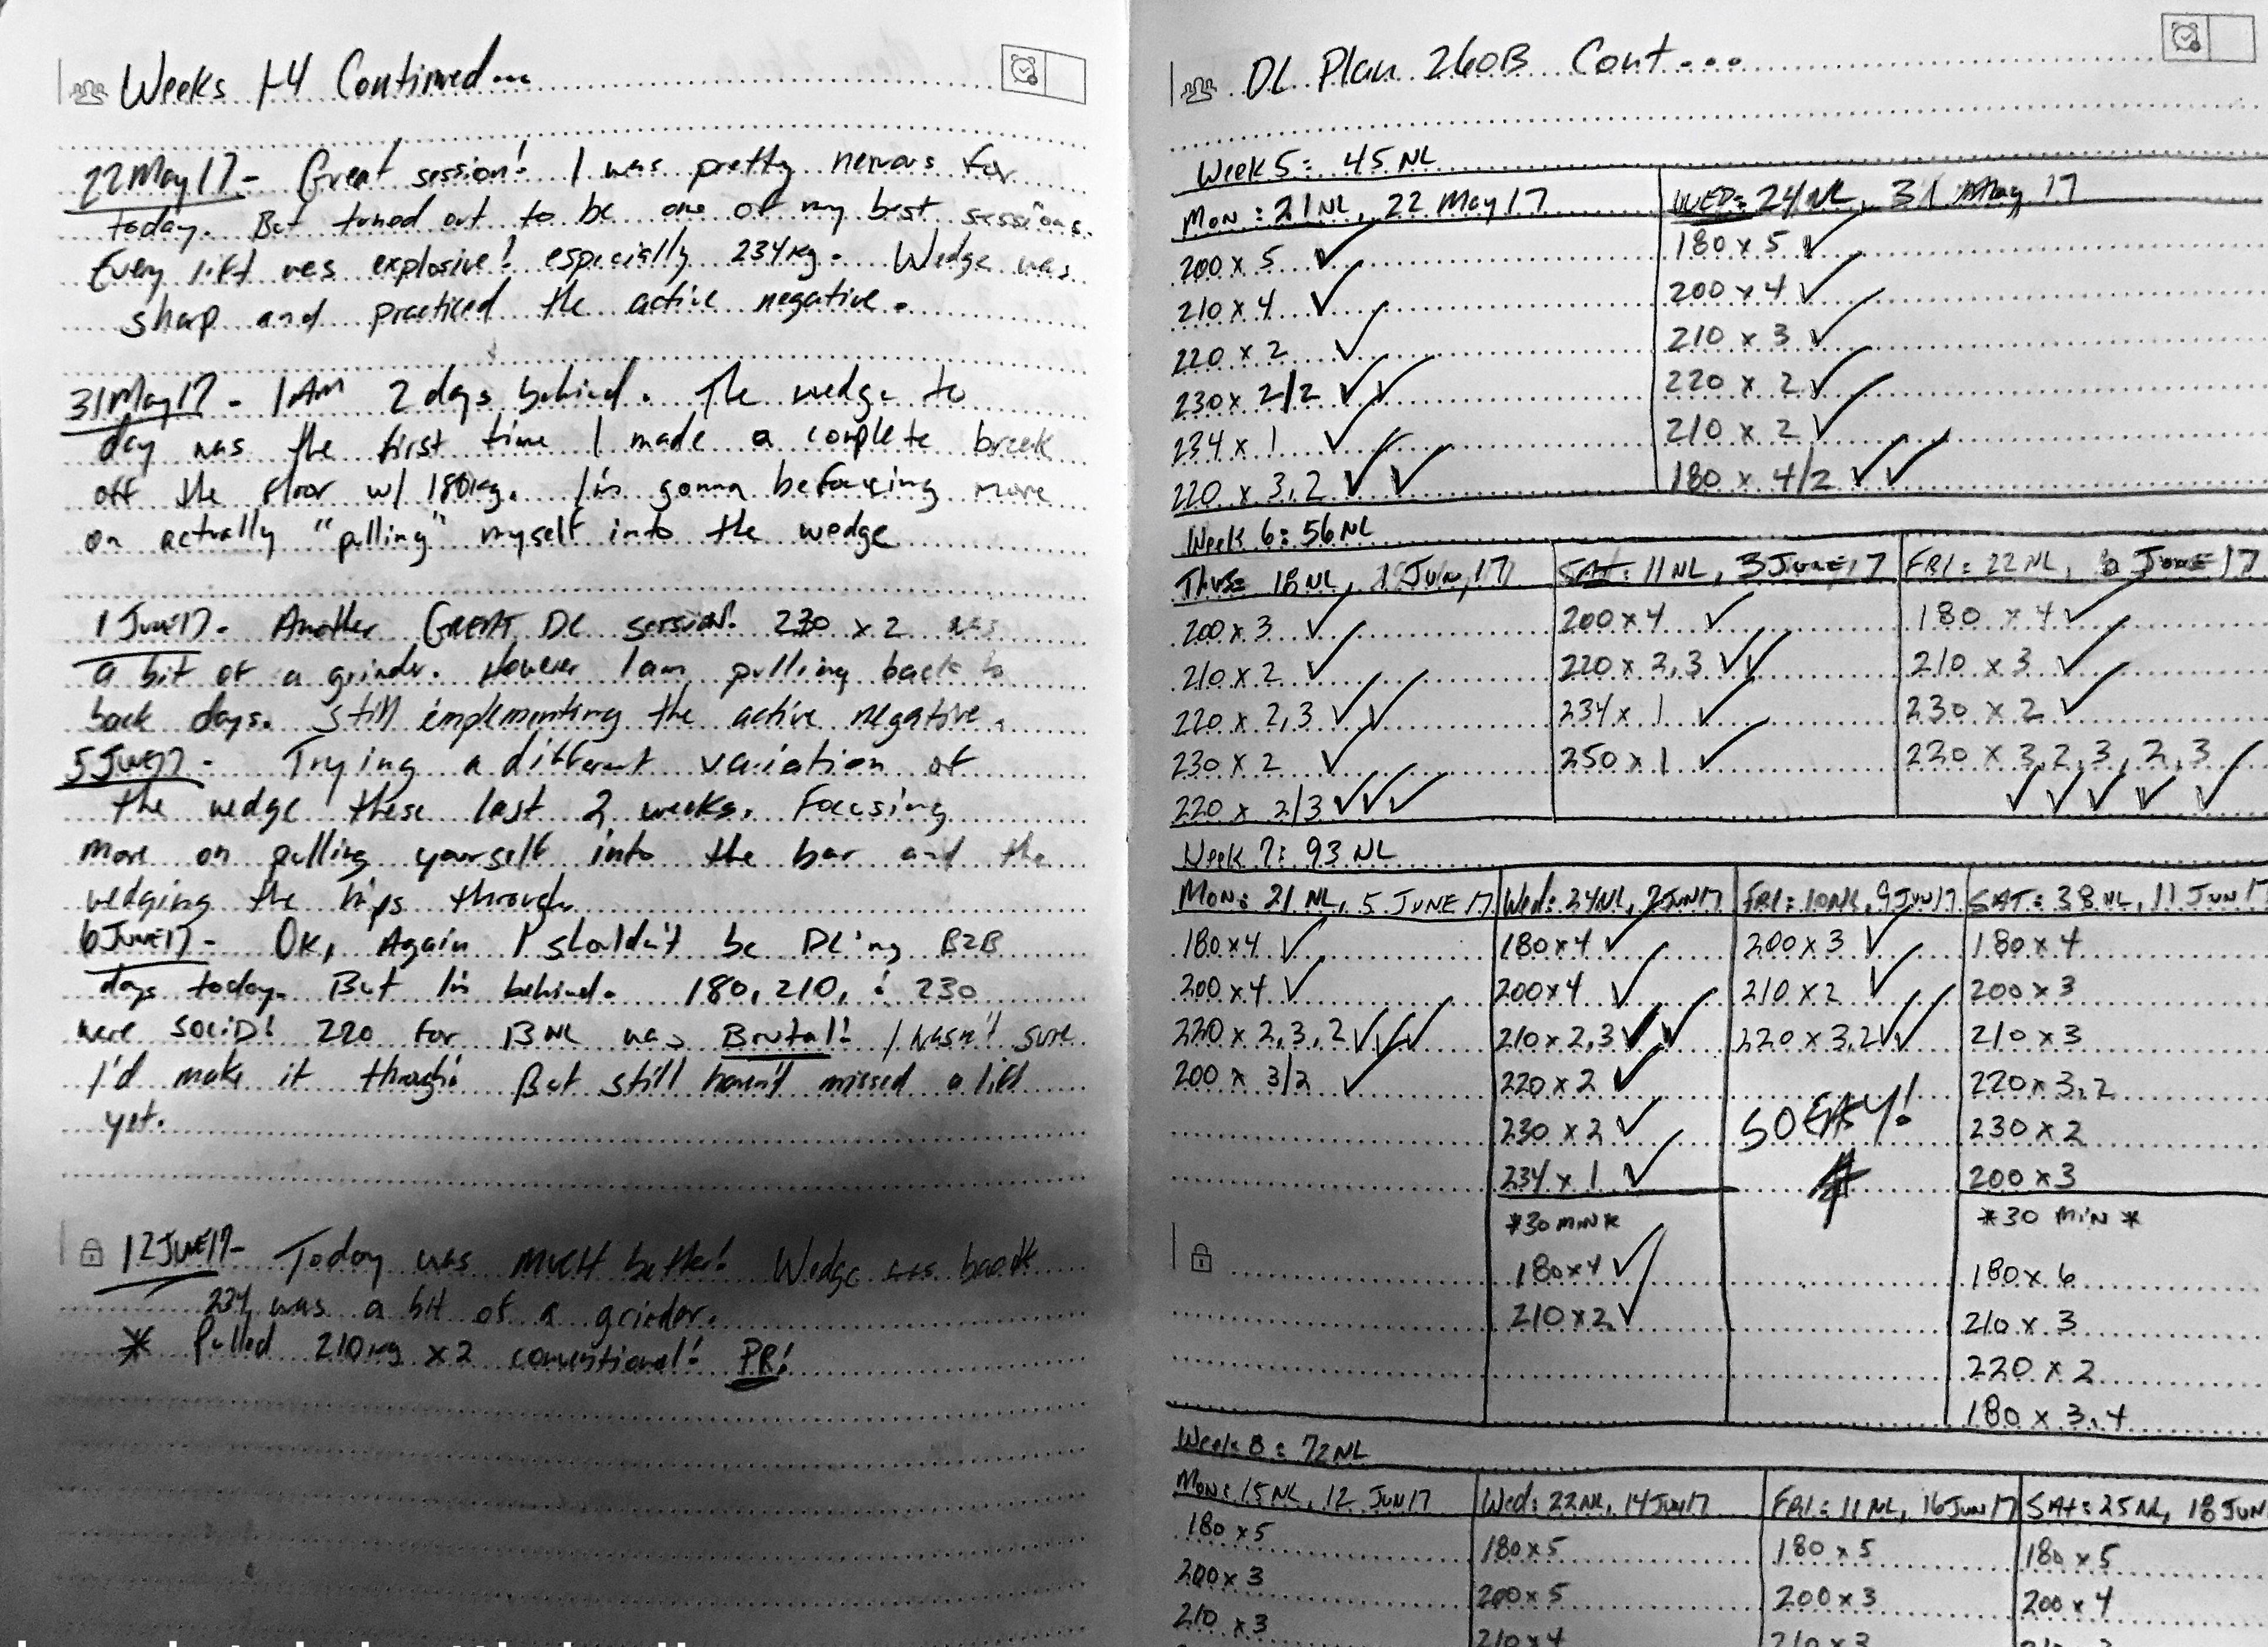 Weeks 1-4 Continued...
22 May 17 - Great session! I was pretty nervous for
today. But turned out to be one of my best sessions.
Every lift was explosive! especially 234kg. Wedge was
sharp and practiced the active negative.
31 May 17 - I AM 2 days behind. The wedge to
day was the first time I made a complete break
off the floor w/ 180kg. I'm gonna be focusing more
on actually "pulling" myself into the wedge
1 June 17 - Another GREAT DL session! 230 x 2 was
a bit of a grinder. However I am pulling back to
back days. Still implementing the active negative.
5 June 17 - Trying a different variation of
the wedge these last 2 weeks. Focusing
more on pulling yourself into the bar and the
wedging the hips through.
6 June 17 - OK, Again I shouldn't be DL'ing B2B
days today. But I'm behind. 180, 210, & 230
were SOLID! 220 for 13 NL was Brutal! I wasn't sure
I'd make it through! But still haven't missed a lift
yet.
12 June 17 - Today was MUCH better! Wedge was back
234 was a bit of a grinder.
* Pulled 210kg x2 conventional! PR!
DL Plan 260B Cont...
Week 5: 45 NL
Mon: 21 NL, 22 May 17
200 x 5 ✓
210 x 4 ✓
220 x 2 ✓
230 x 2/2 ✓✓
234 x 1 ✓
220 x 3,2 ✓✓
WED: 24 NL, 31 May 17
180 x 5 ✓
200 x 4 ✓
210 x 3 ✓
220 x 2 ✓
210 x 2 ✓
180 x 4/2 ✓✓
Week 6: 56 NL
Thus: 18 NL, 1 Jun, 17
200 x 3 ✓
210 x 2 ✓
220 x 2,3 ✓✓
230 x 2 ✓
220 x 2/3 ✓✓✓
SAT: 11 NL, 3 JUNE 17
200 x 4 ✓
220 x 2,3 ✓✓
234 x 1 ✓
250 x 1 ✓
FRI: 22 NL, June 17
180 x 4 ✓
210 x 3 ✓
230 x 2 ✓
220 x 3,2,3,2,3
✓✓✓✓✓
Week 7: 93 NL
Mon: 21 NL, 5 JUNE 17
180 x 4 ✓
200 x 4 ✓
220 x 2,3,2 ✓✓✓
200 x 3/2 ✓
Wed: 24 NL, 7 Jun 17
180 x 4 ✓
200 x 4 ✓
210 x 2,3 ✓✓
220 x 2 ✓
230 x 2 ✓
234 x 1 ✓
*30 MIN*
180 x 4 ✓
210 x 2 ✓
FRI: 10 NL, 9 Jun 17
200 x 3 ✓
210 x 2 ✓
220 x 3,2 ✓✓
SO EASY!
SAT: 38 NL, 11 Jun 17
180 x 4
200 x 3
210 x 3
220 x 3,2
230 x 2
200 x 3
*30 MIN*
180 x 6
210 x 3
220 x 2
180 x 3,4
Week 8: 72 NL
Mon: 15 NL, 12 Jun 17
180 x 5
200 x 3
210 x 3
Wed: 22 NL, 14 Jun 17
180 x 5
200 x 5
210 x 4
FRI: 11 NL, 16 Jun 17
180 x 5
200 x 3
210 x 3
SAt: 25 NL, 18 Jun
180 x 5
200 x 4